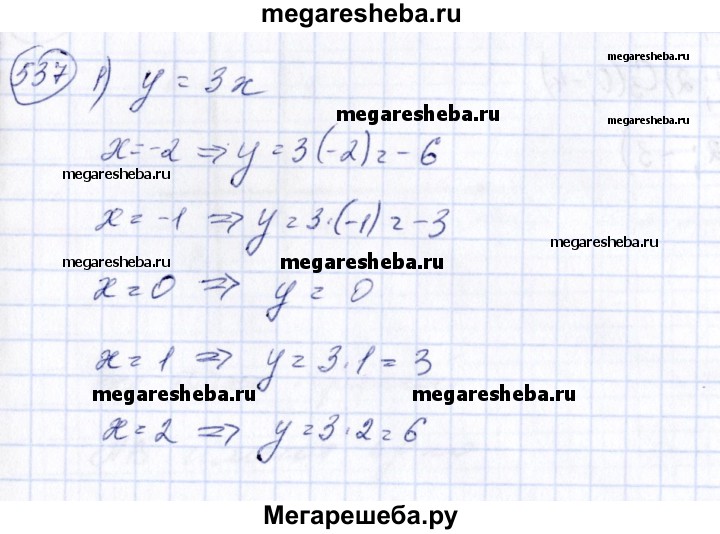 megaresheba.ru
537 1) y = 3x
megaresheba.ru
megaresheba.ru
megaresheba.ru
x=-2 ⇒ y = 3(-2) = -6
megaresheba.ru
x = -1 ⇒ y = 3·(-1) = -3
megaresheba.ru
megaresheba.ru megaresheba.ru
x=0 ⇒ y = 0
x = 1 ⇒ y = 3·1 = 3
megaresheba.ru megaresheba.ru
x=2 ⇒ y=3·2=6
Мегарешеба.ру